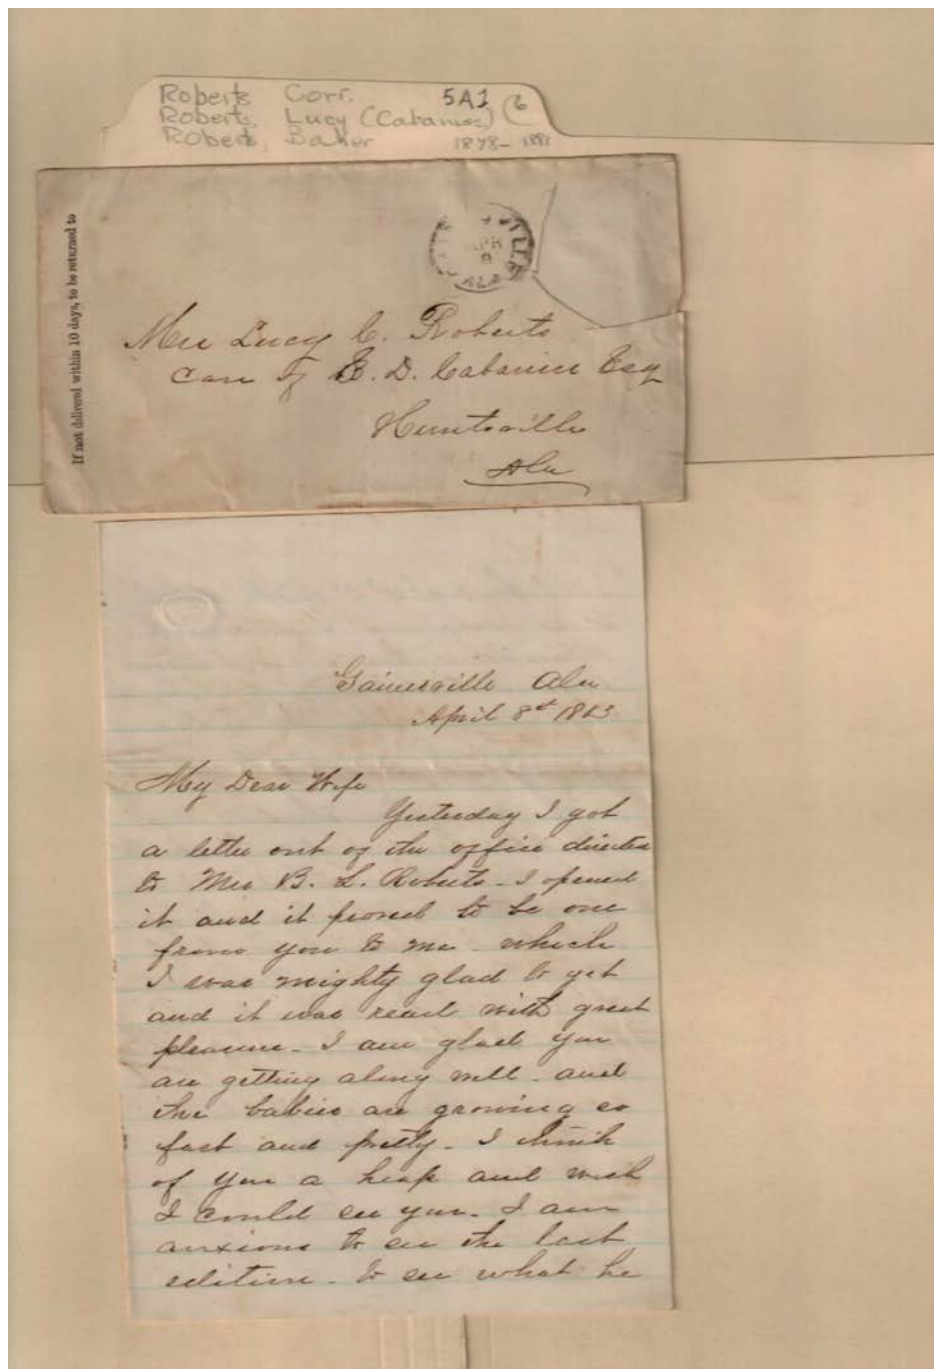 Roberts Corr. 5A1 6
Roberts, Lucy (Cabaniss)
Roberts, Baker 1878-
If not delivered within 10 days, to be returned to
APR
Mrs Lucy C. Roberts
Care of S. D. Cabaniss Esq
Huntsville
Ala
Gainesville Ala
April 8th
My Dear Wife
Yesterday I got
a letter out of the office directed
to Mrs B. L. Roberts - I opened
it and it proved to be one
from you to me - which
I was mighty glad to get
and it was read with great
pleasure - I am glad you
are getting along well - and
the babies are growing so
fast and pretty - I think
of you a heap and wish
I could see you - I am
anxious to see the last
edition - to see what he